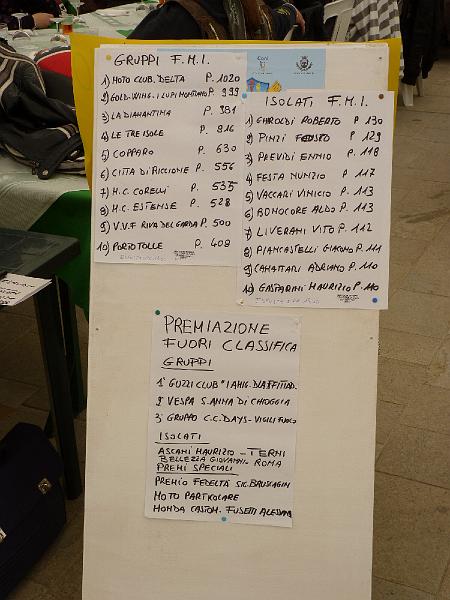 GRUPPI F.M.I.
1) MOTO CLUB. DELTA P. 1020
2) GOLD-WING. I LUPI MONTANO P. 999
3) LA DIAMANTINA P. 981
4) LE TRE ISOLE P. 816
5) COPPARO P. 630
6) CITTA DI RICCIONE P. 556
7) M.C. CORELLI P. 535
8) M.C. ESTENSE P. 528
9) V.V.F RIVA DEL GARDA P. 500
10) PORTO TOLLE P. 408
ISOLATI F.M.I.
1) GHROLDI ROBERTO P 130
2) PINZI FAUSTO P 129
3) PREVIDI ENNIO P. 118
4) FESTA NUNZIO P. 117
5) VACCARI VINICIO P. 113
6) BONOCORE ALDO P. 113
7) LIVERANI VITO P. 112
8) PIANCASTELLI GIACOMO P. 111
9) CAMATTARI ADRIANO P. 110
10) GASPARINI MAURIZIO P. 110
PREMIAZIONE
FUORI CLASSIFICA
GRUPPI
1° GUZZI CLUB
2° VESPA S. ANNA DI CHOGGIA
3° GRUPPO C.C. DAYS - VIGILI FUOCO
ISOLATI
ASCANI MAURIZIO - TERNI
BELLEZZA GIOVANNI - ROMA
PREMI SPECIALI
PREMIO FEDELTÀ SIG. BAUSCAGIN
MOTO PARTKOLARE
HONDA CASTOM. FUSETTI ALESSAN